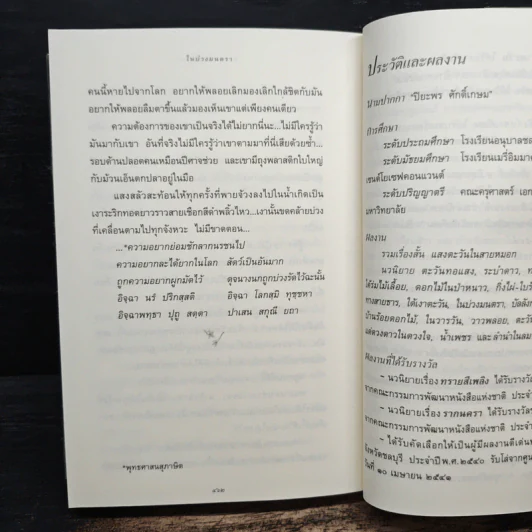 ในบ่วงมนตรา
คนนี้หายไปจากโลก อยากให้พลอยเลิกมองเลิกใกล้ชิดกับมัน
อยากให้พลอยลืมตาขึ้นแล้วมองเห็นเขาแต่เพียงคนเดียว
ความต้องการของเขาเป็นจริงได้ไม่ยากนี่นะ...ไม่มีใครรู้ว่า
มันมากับเขา อันที่จริงไม่มีใครรู้ว่าเขาตามมาที่นี่เสียด้วยซ้ำ...
รอบด้านปลอดคนเหมือนปีศาจช่วย และเขามีถุงพลาสติกใบใหญ่
กับม้วนเอ็นตกปลาอยู่ในมือ
แสงสลัวสะท้อนให้ทุกครั้งที่พายจ้วงลงไปในน้ำเกิดเป็น
เงาระริกทอดยาวราวสายเชือกสีดำพลิ้วไหว...เงานั้นขดคล้ายบ่วง
ที่เคลื่อนตามไปทุกจังหวะ ไม่มีขาดตอน...
...*ความอยากย่อมชักลากนรชนไป
ความอยากละได้ยากในโลก สัตว์เป็นอันมาก
ถูกความอยากผูกมัดไว้ ดุจนางนกถูกบ่วงรัดไว้ฉะนั้น
อิจฺฉา นรํ ปริกสฺสติ อิจฺฉา โลกสฺมิ ทุชฺชหา
อิจฺฉาพทฺธา ปุถู สตฺตา ปาเสน สกุณี ยถา
*พุทธศาสนสุภาษิต
๔๖๒
ประวัติและผลงาน
นามปากกา "ปิยะพร ศักดิ์เกษม"
การศึกษา
ระดับประถมศึกษา โรงเรียนอนุบาลชล
ระดับมัธยมศึกษา โรงเรียนเมรี่อิมมา
เซนต์โยเซฟคอนแวนต์
ระดับปริญญาตรี คณะครุศาสตร์ เอก
มหาวิทยาลัย
ผลงาน
รวมเรื่องสั้น แสงตะวันในสายหมอก
นวนิยาย ตะวันทอแสง, ระบำดาว, ท
ใต้ร่มไม้เลื้อย, ดอกไม้ในป่าหนาว, กิ่งไผ่-ใบรั
ทางสายธาร, ใต้เงาตะวัน, ในบ่วงมนตรา, บัลลัง
บ้านร้อยดอกไม้, ในวารวัน, วาวพลอย, ตะวั
แต่ดวงดาวในดวงใจ, น้ำเพชร และ ลำนำในลม
ผลงานที่ได้รับรางวัล
– นวนิยายเรื่อง ทรายสีเพลิง ได้รับรางวั
จากคณะกรรมการพัฒนาหนังสือแห่งชาติ ประจำ
– นวนิยายเรื่อง รากนครา ได้รับรางวัล
จากคณะกรรมการพัฒนาหนังสือแห่งชาติ ประจำ
– ได้รับคัดเลือกให้เป็นผู้มีผลงานดีเด่น
จังหวัดชลบุรี ประจำปีพ.ศ.๒๕๔๐ รับโล่จากศูน
วันที่ ๑๐ เมษายน ๒๕๔๑